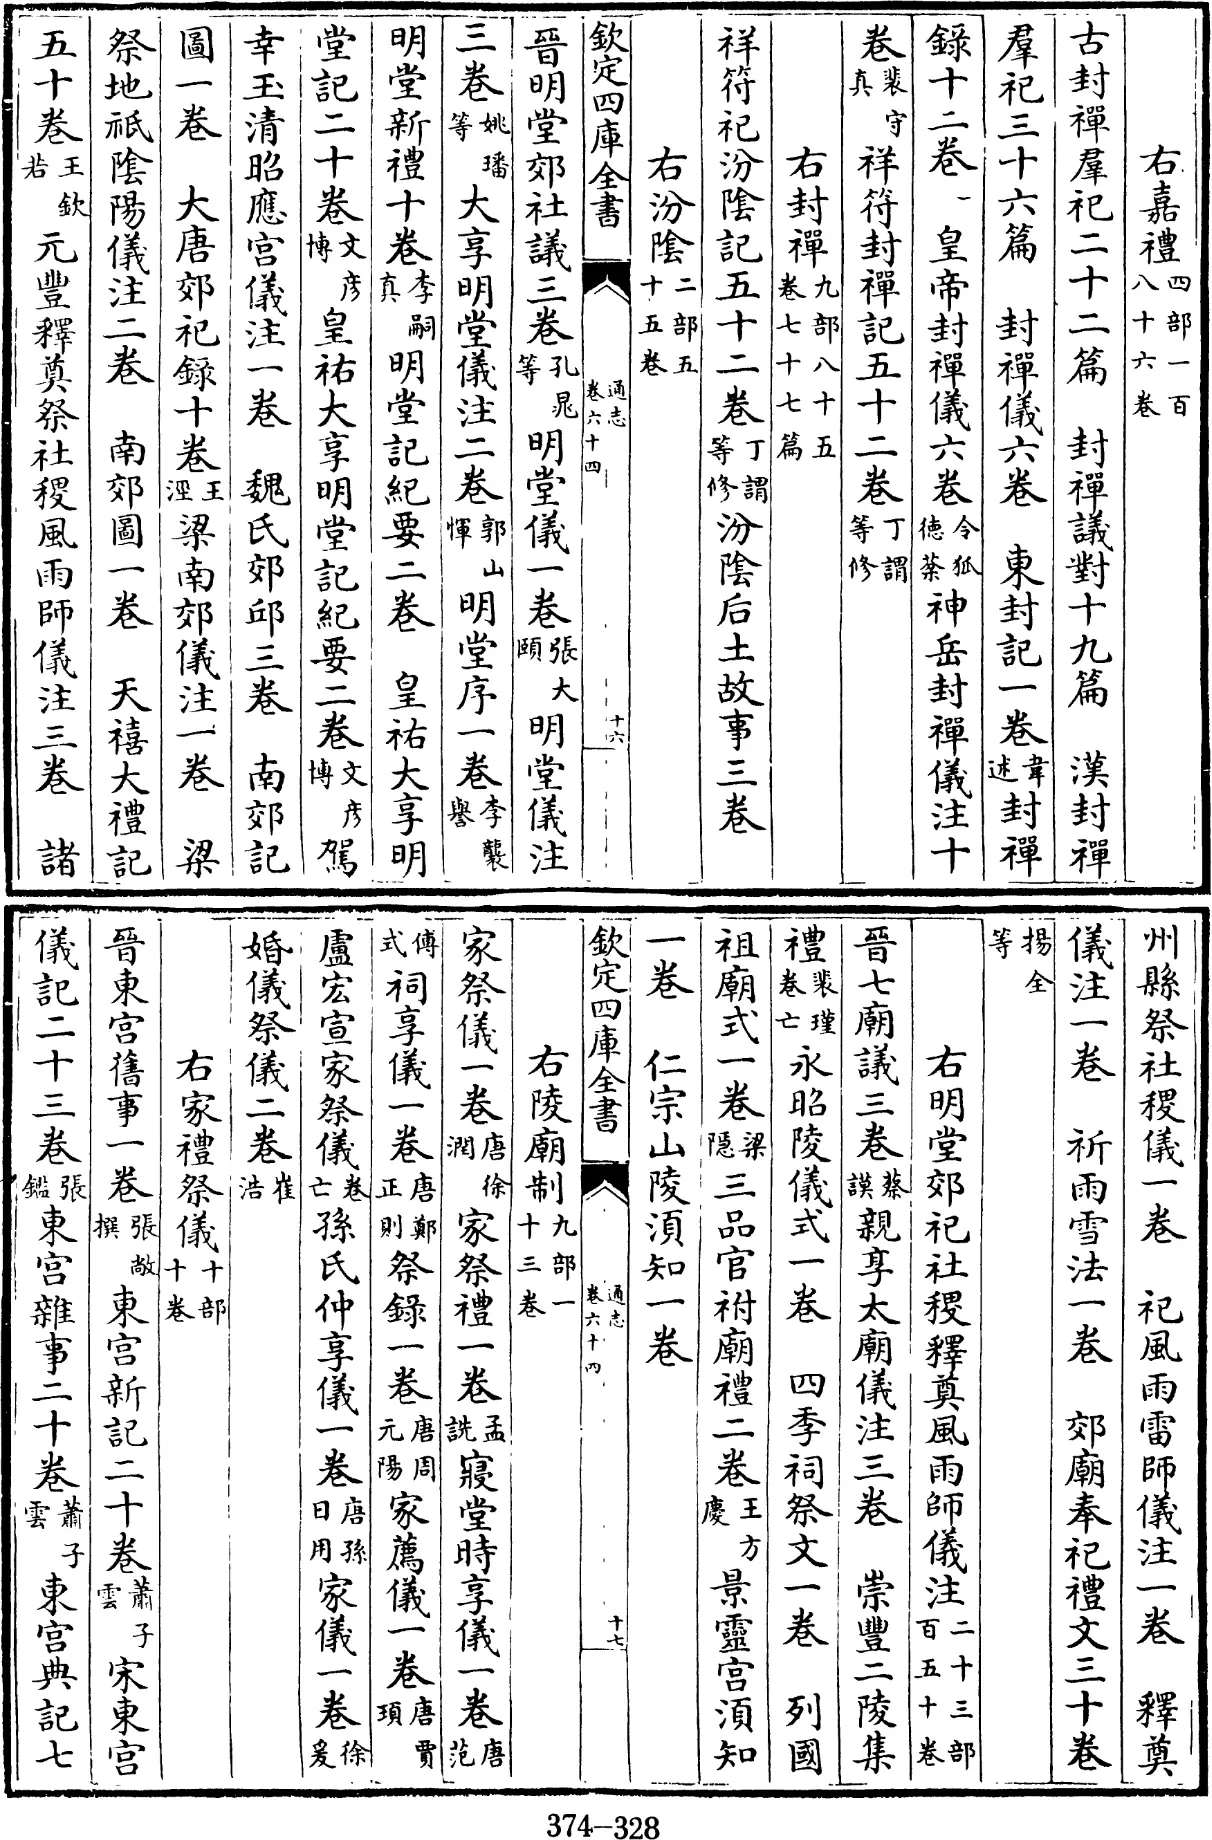 右嘉禮四部一百八十六卷
古封禪羣祀二十二篇　封禪議對十九篇　漢封禪
羣祀三十六篇　封禪儀六卷　東封記一卷韋述封禪
錄十二卷　皇帝封禪儀六卷令狐德棻神岳封禪儀注十
卷裴守真祥符封禪記五十二卷丁謂等修
右封禪九部八十五卷七十七篇
祥符祀汾陰記五十二卷丁謂等修汾陰后土故事三卷
右汾陰二部五十五卷
欽定四庫全書　通志卷六十四　十六
晉明堂郊社議三卷孔晁等明堂儀一卷張大頤明堂儀注
三卷姚璠等大享明堂儀注二卷郭山惲明堂序一卷李襲譽
明堂新禮十卷李嗣真明堂記紀要二卷　皇祐大享明
堂記二十卷文彦博皇祐大享明堂記紀要二卷文彦博駕
幸玉清昭應宫儀注一卷　魏氏郊邱三卷　南郊記
圖一卷　大唐郊祀錄十卷王涇梁南郊儀注一卷　梁
祭地祇陰陽儀注二卷　南郊圖一卷　天禧大禮記
五十卷王欽若元豐釋奠祭社稷風雨師儀注三卷　諸
州縣祭社稷儀一卷　祀風雨雷師儀注一卷　釋奠
儀注一卷　祈雨雪法一卷　郊廟奉祀禮文三十卷
揚全等
右明堂郊祀社稷釋奠風雨師儀注二十三部百五十卷
晉七廟議三卷蔡謨親享太廟儀注三卷　崇豐二陵集
禮裴瑾卷亡永昭陵儀式一卷　四季祠祭文一卷　列國
祖廟式一卷梁隱三品官祔廟禮二卷王方慶景靈宫須知
一卷　仁宗山陵須知一卷
右陵廟制九部一十三卷
欽定四庫全書　通志卷六十四　十七
家祭儀一卷唐徐潤家祭禮一卷孟詵寢堂時享儀一卷唐范
傳式祠享儀一卷唐鄭正則祭錄一卷唐周元陽家薦儀一卷唐賈頊
盧宏宣家祭儀卷亡孫氏仲享儀一卷唐孫日用家儀一卷徐爰
婚儀祭儀二卷崔浩
右家禮祭儀十部十卷
晉東宫舊事一卷張敞撰東宫新記二十卷蕭子雲宋東宫
儀記二十三卷張鑑東宫雜事二十卷蕭子雲東宫典記七
374-328